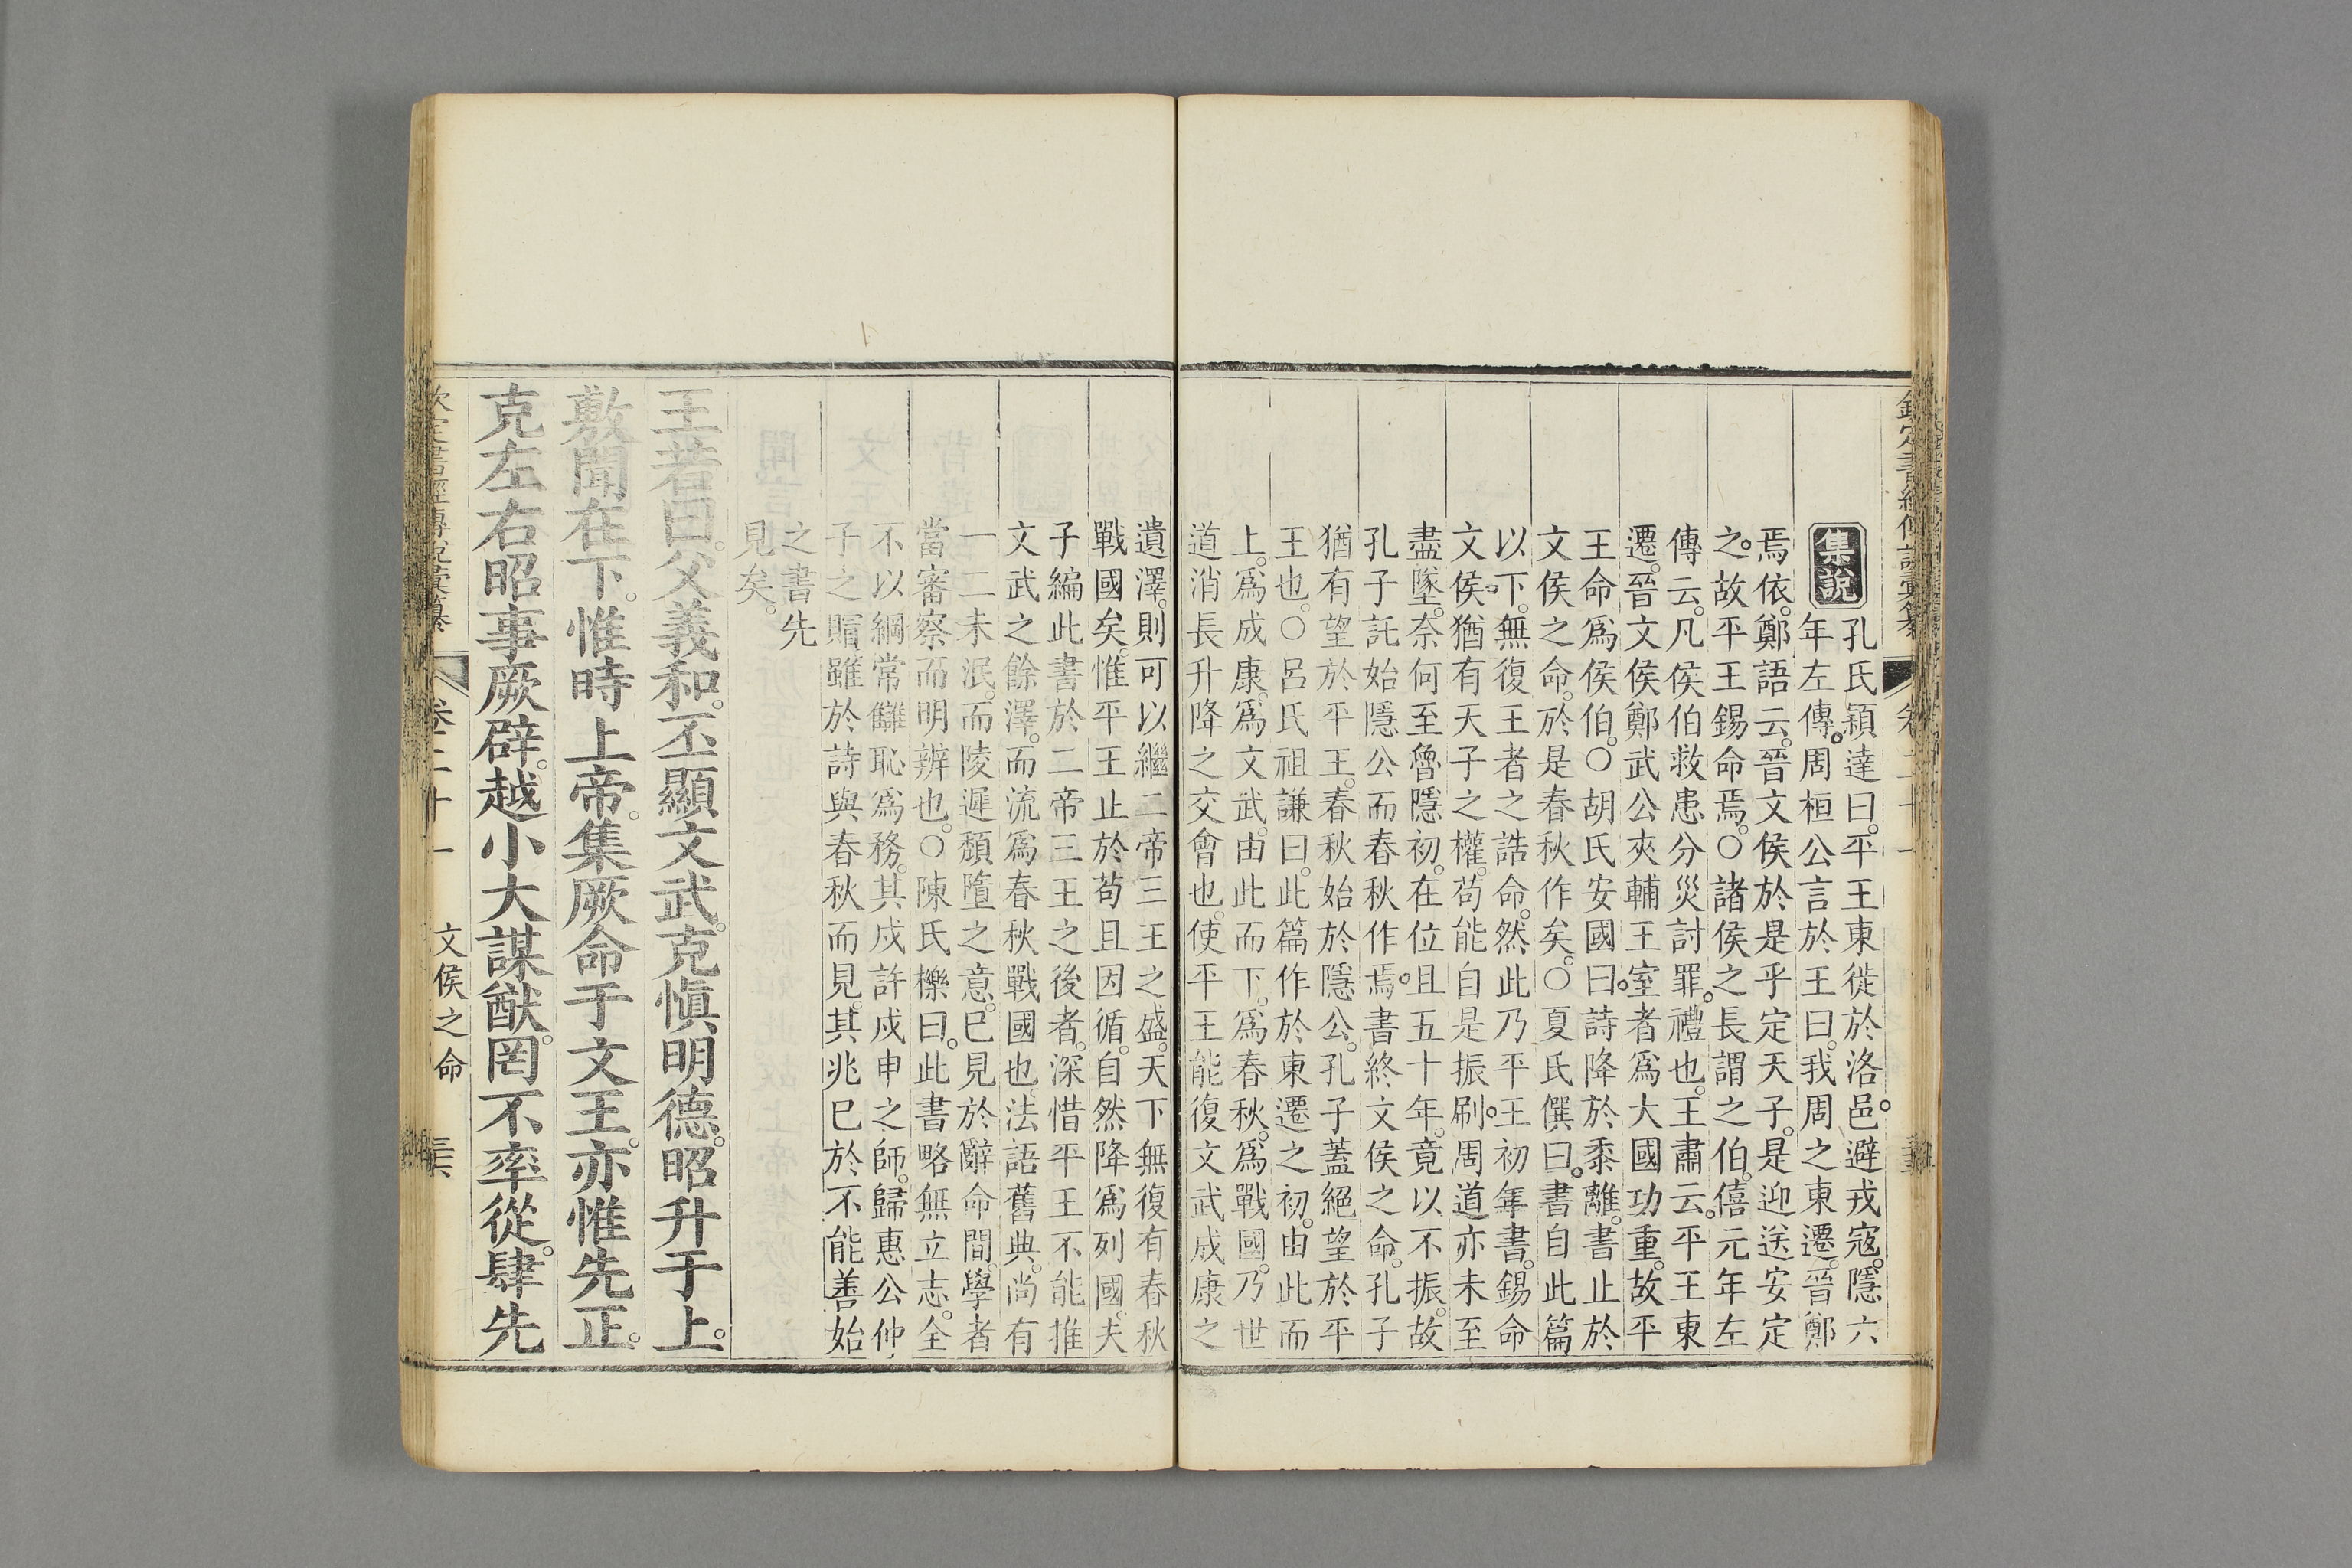 欽定書經傳說彙纂 卷二十一
集說
孔氏穎達曰平王東徙於洛邑避戎寇隱六
年左傳周桓公言於王曰我周之東遷晉鄭
焉依鄭語云晉文侯於是乎定天子是迎送安定
之故平王錫命焉○諸侯之長謂之伯僖元年左
傳云凡侯伯救患分災討罪禮也王肅云平王東
遷晉文侯鄭武公夾輔王室者爲大國功重故平
王命爲侯伯○胡氏安國曰詩降於黍離書止於
文侯之命於是春秋作矣○夏氏僎曰書自此篇
以下無復王者之誥命然此乃平王初年書錫命
文侯猶有天子之權苟能自是振刷周道亦未至
盡墜奈何至魯隱初在位且五十年竟以不振故
孔子託始隱公而春秋作焉書終文侯之命孔子
猶有望於平王春秋始於隱公孔子蓋絕望於平
王也○呂氏祖謙曰此篇作於東遷之初由此而
上爲成康爲文武由此而下爲春秋爲戰國乃世
道消長升降之交會也使平王能復文武成康之
遺澤則可以繼二帝三王之盛天下無復有春秋
戰國矣惟平王止於苟且因循自然降爲列國夫
子編此書於二帝三王之後者深惜平王不能推
文武之餘澤而流爲春秋戰國也法語舊典尚有
一二未泯而陵遲頽墮之意已見於辭命間學者
當審察而明辨也○陳氏櫟曰此書略無立志全
不以綱常讎恥爲務其戍許戍申之師歸惠公仲
子之賵雖於詩與春秋而見其兆已於不能善始
之書先
見矣
王若曰父義和丕顯文武克慎明德昭升于上
敷聞在下惟時上帝集厥命于文王亦惟先正
克左右昭事厥辟越小大謀猷罔不率從肆先
欽定書經傳說彙纂 卷二十一 文侯之命